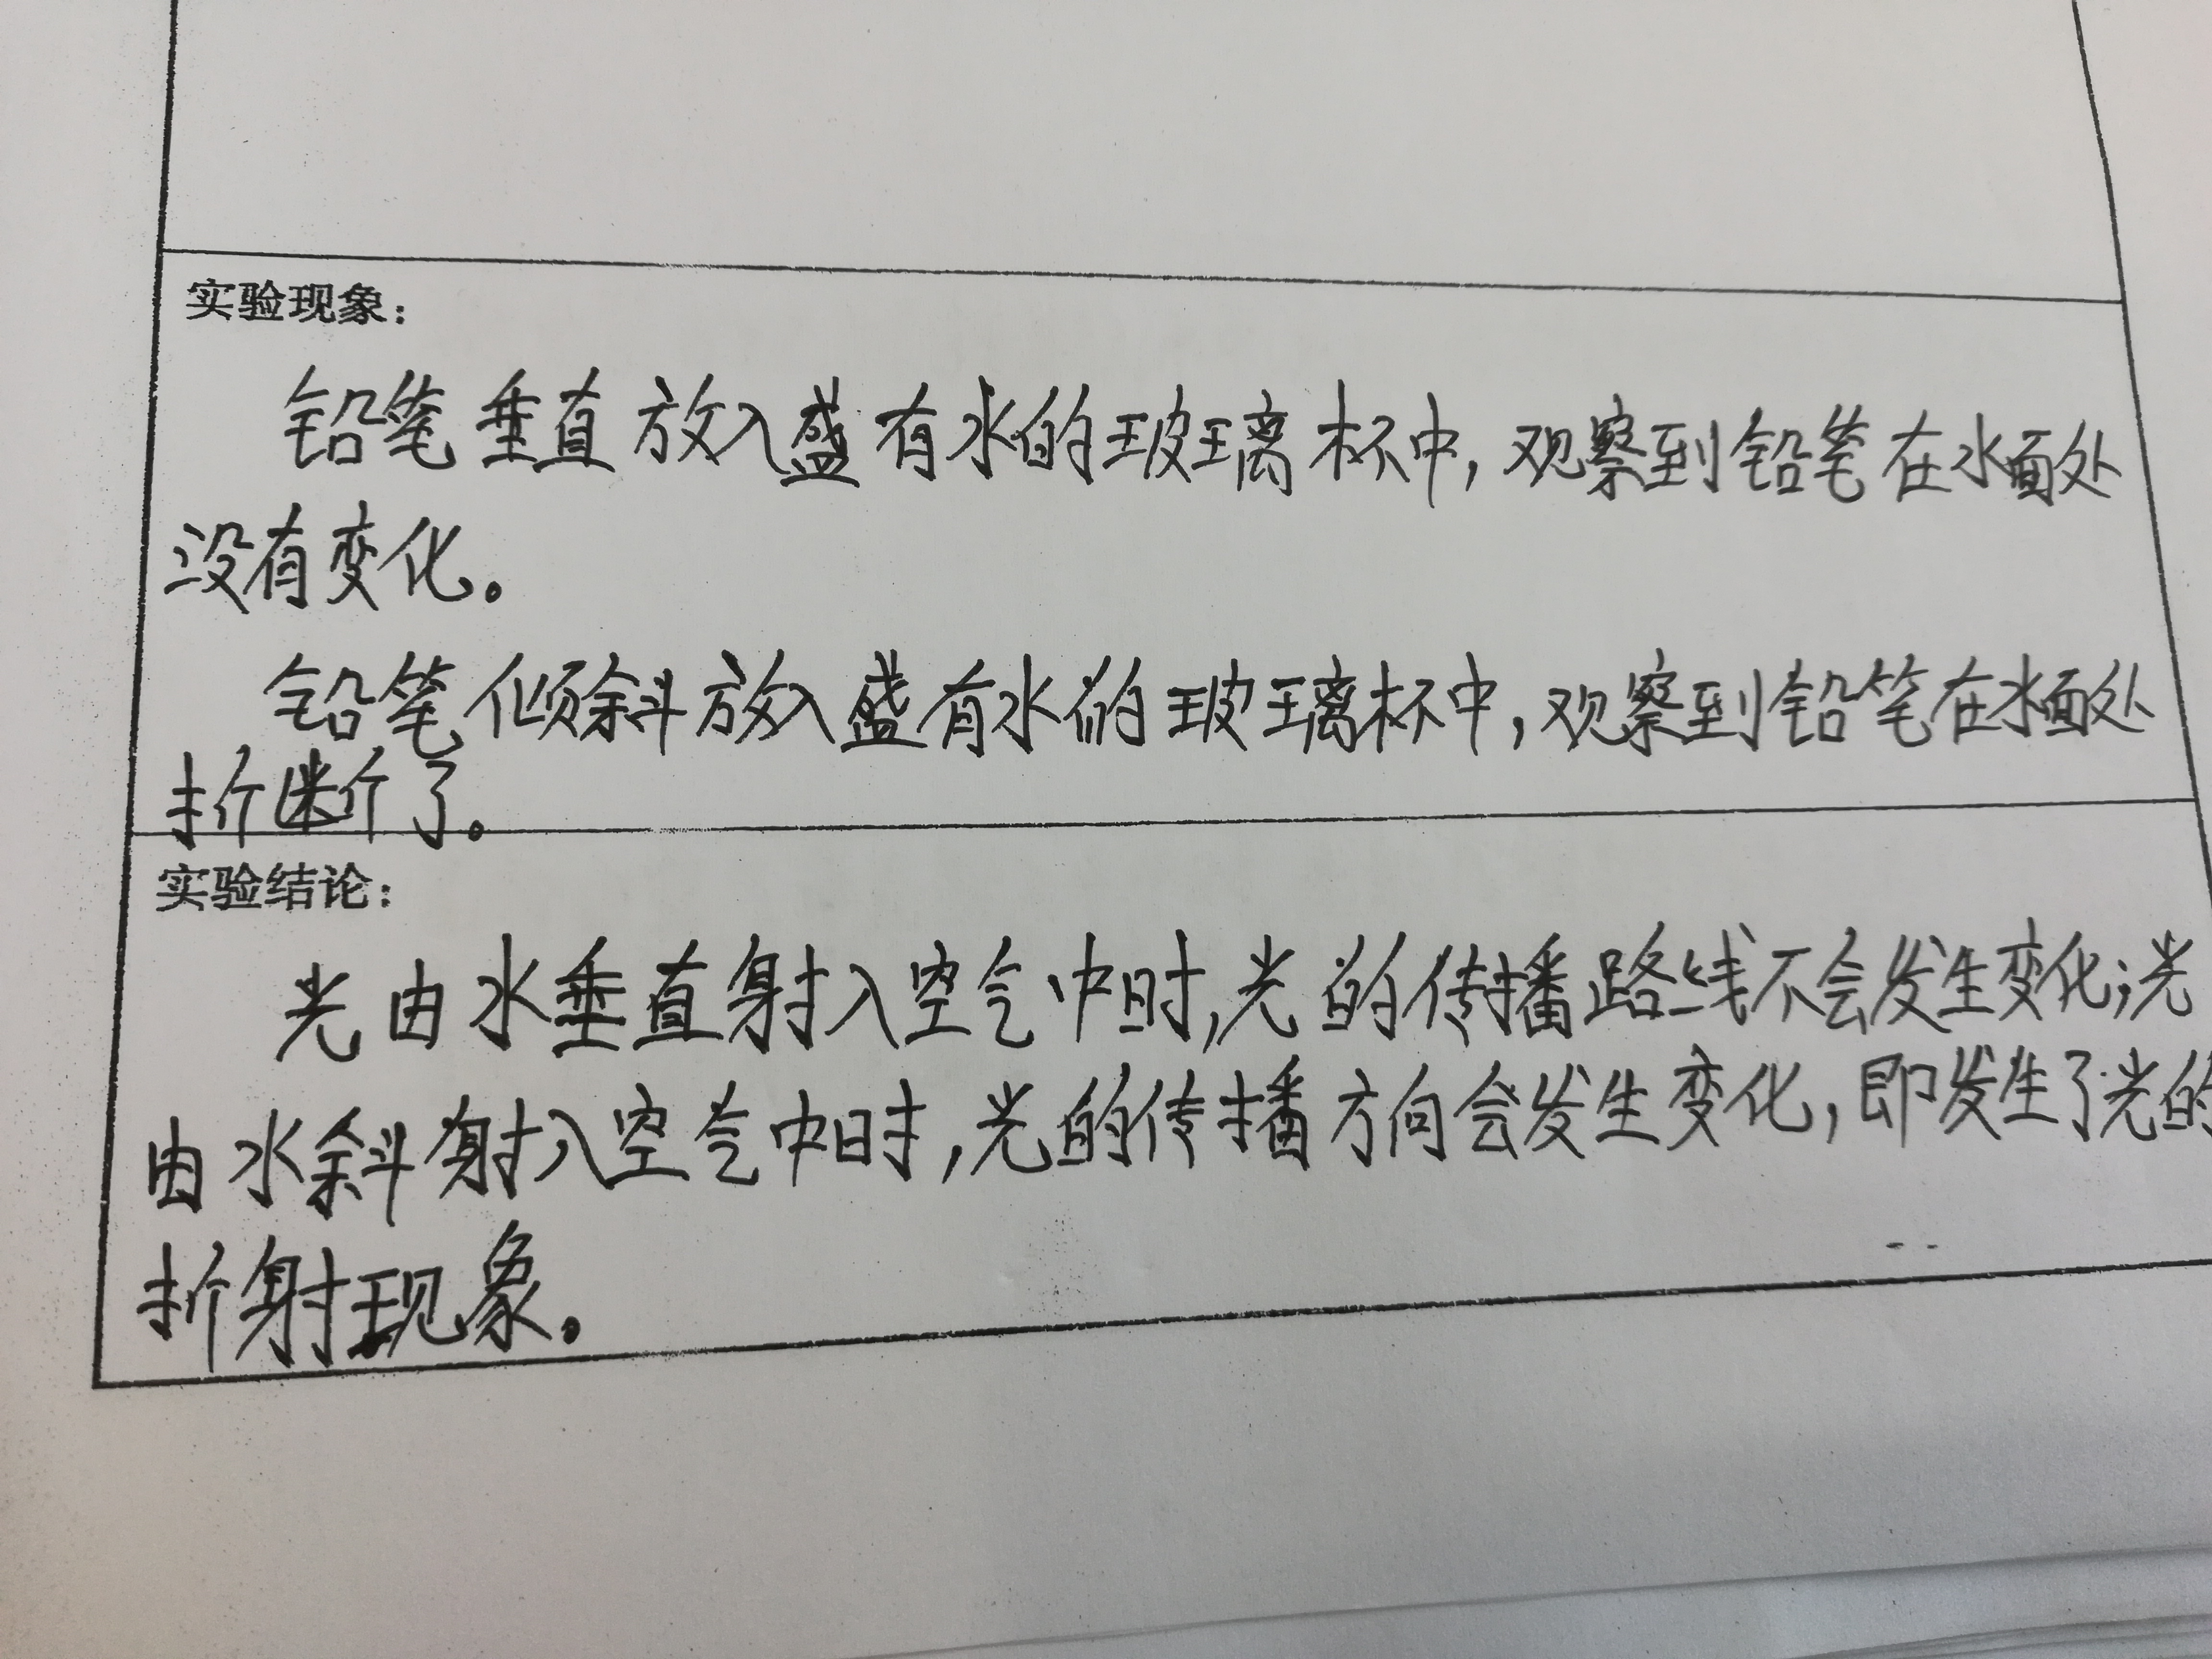 实验现象：
铅笔垂直放入盛有水的玻璃杯中，观察到铅笔在水面处
没有变化。
铅笔倾斜放入盛有水的玻璃杯中，观察到铅笔在水面处
折断了。
实验结论：
光由水垂直射入空气中时，光的传播路线不会发生变化；光
由水斜射入空气中时，光的传播方向会发生变化，即发生了光的
折射现象。